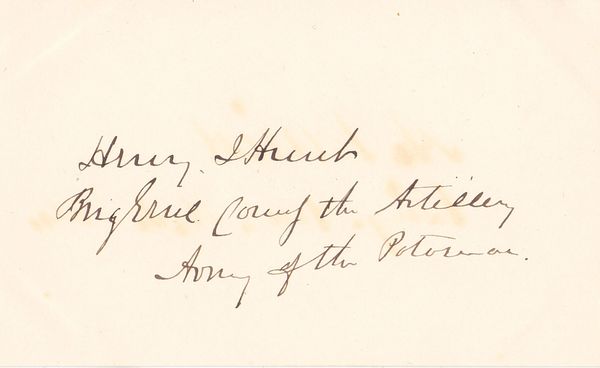 Henry J Hunt
Brig Genl Comg the Artillery
Army of the Potomac.